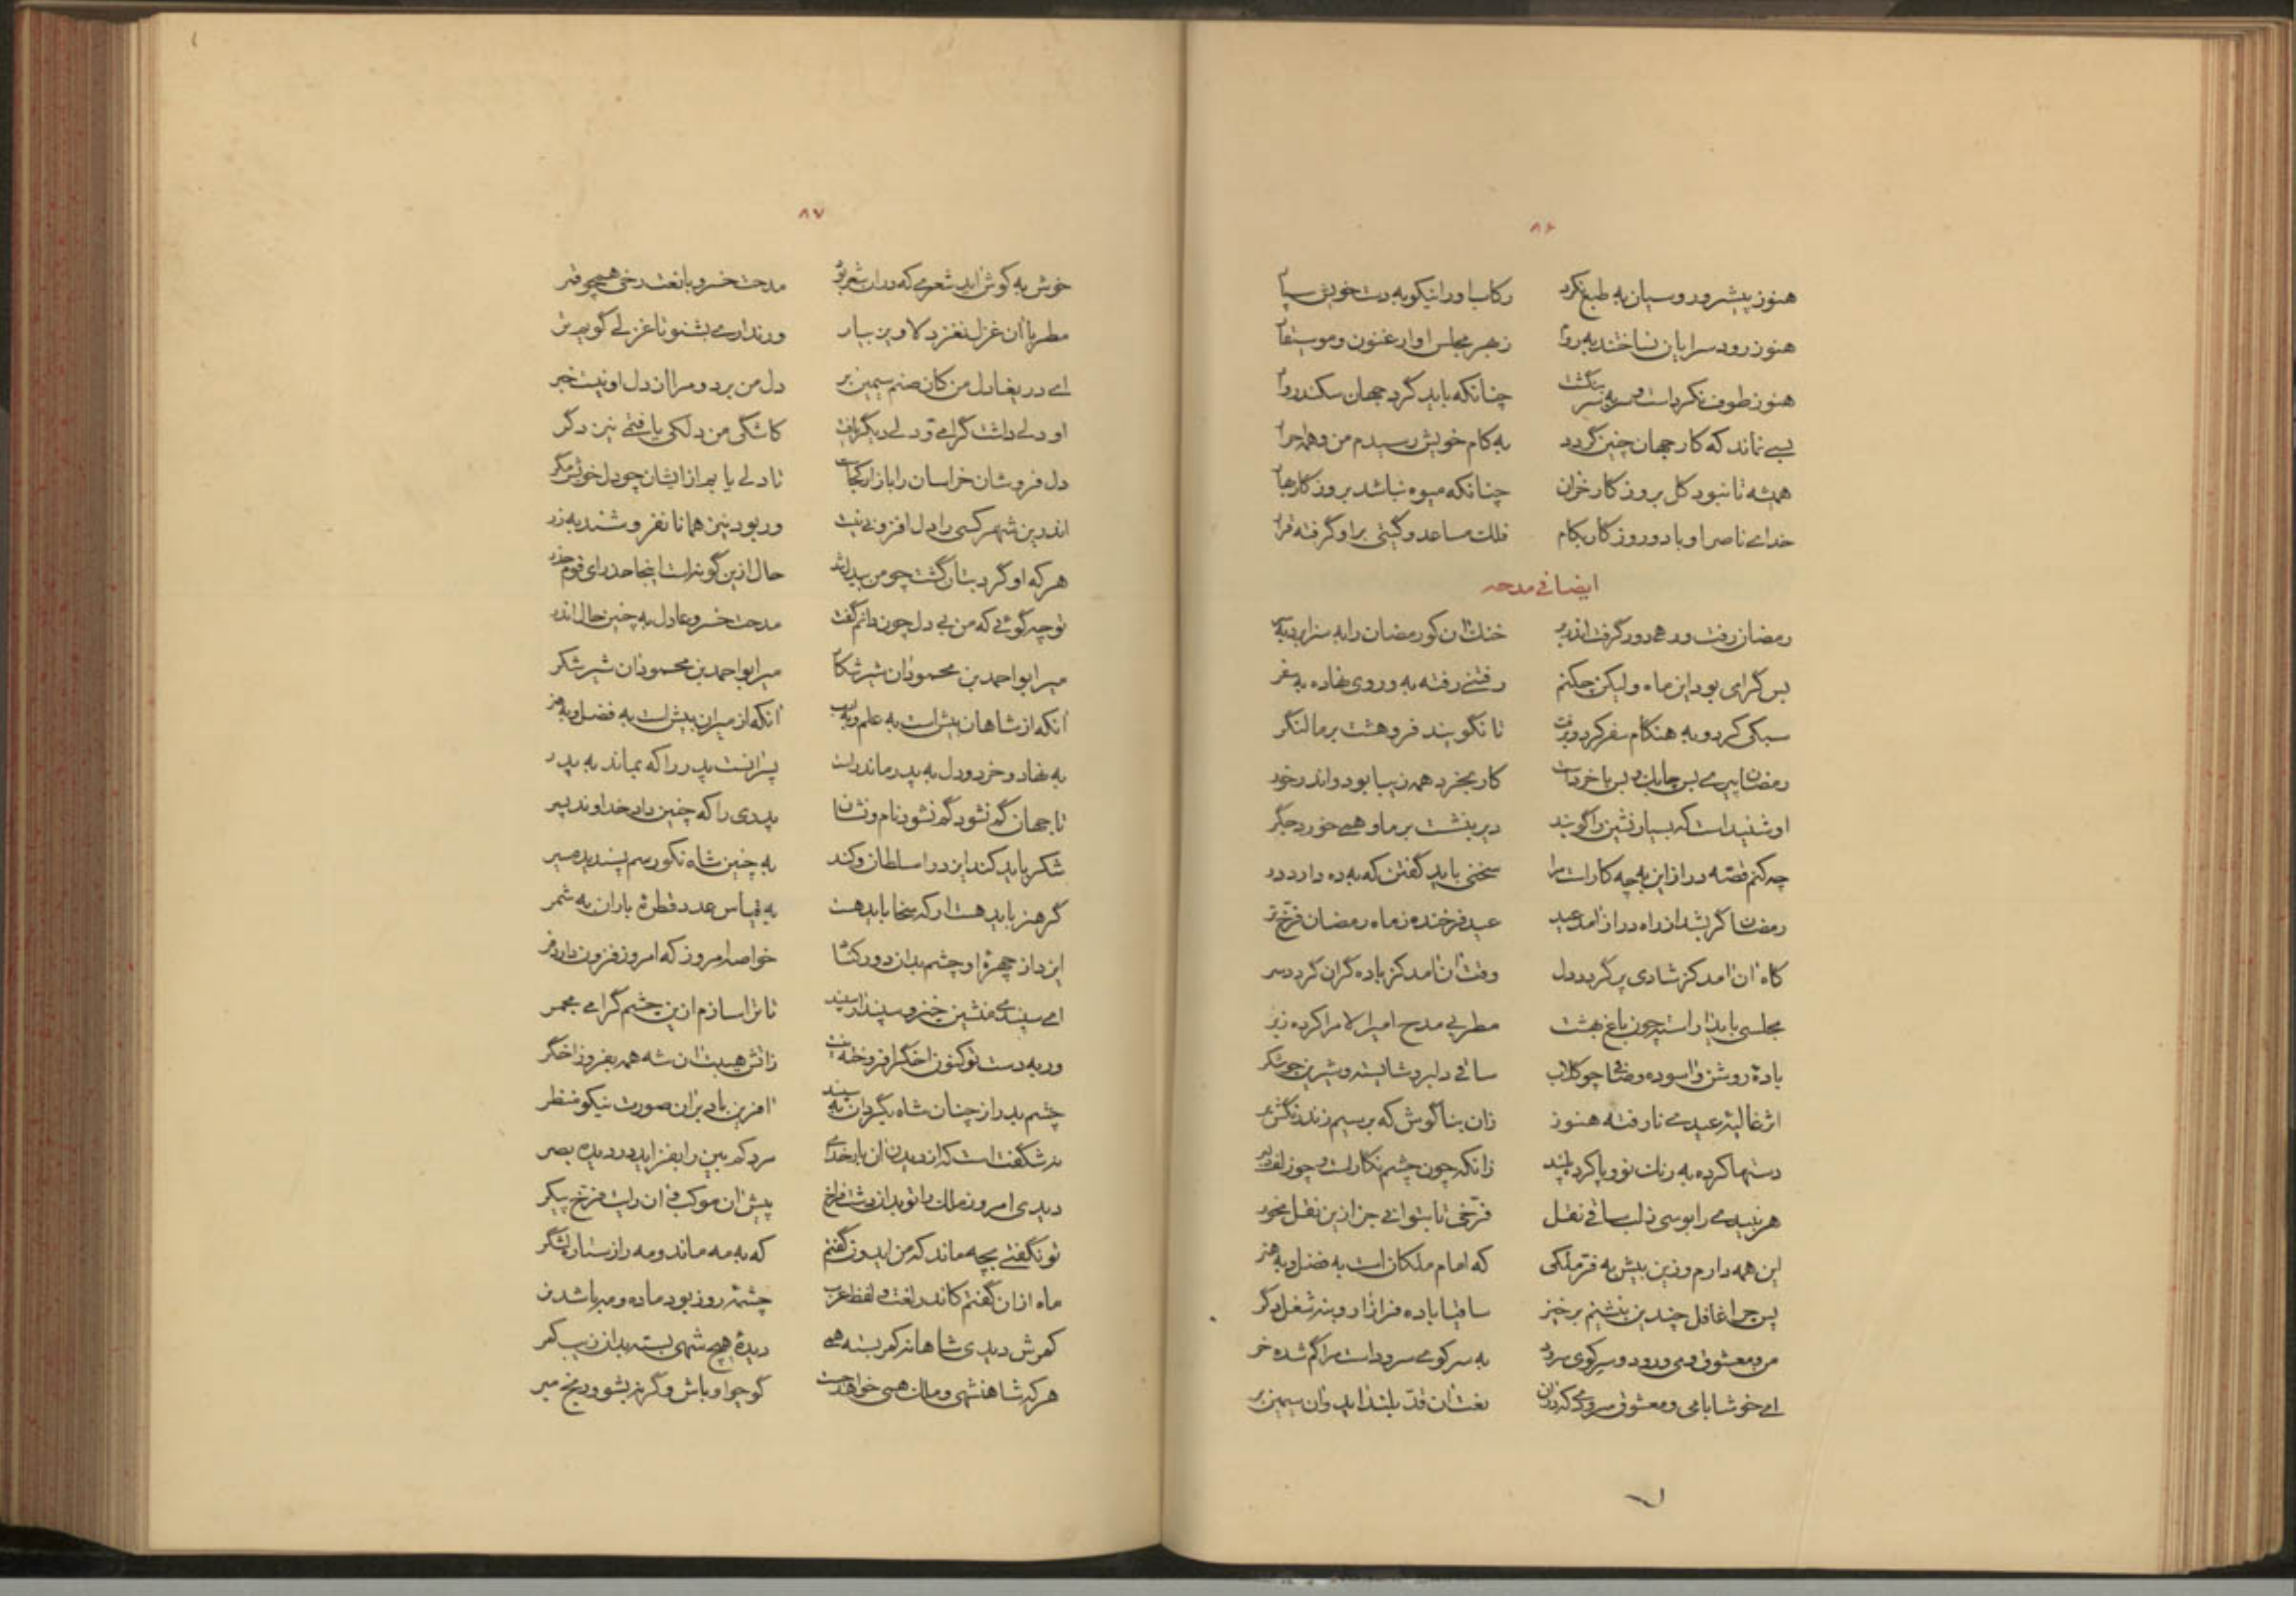 ۸۶
هنوز پیشرو روسیان به طبع نکرد رکاب او را نیکو به دست خویش
هنوز رود سرایان نساختند به روم ز بهر مجلس او ارغنون و موسیقار
هنوز طوف نکرداست و سر به سر بنگشت چنانکه باید گرد جهان سکندروار
بسی نماند که کار جهان چنین گردد به کام خویش رسیدم من و همه احرار
همیشه تا نبود گل بروزگار خزان چنانکه میوه نباشد بروزگار بهار
خدای ناصر او باد و روزگار بکام فلک مساعد و گیتی بر او گرفته قرار
ایضا فی مدحه
رمضان رفت و رهی دور گرفت اندر بر خنک آن کو رمضان را به سزا برد به سر
بس گرامی بود این ماه ولیکن چکنم رفتنی رفته به و روی نهاده به سفر
سبکی کرد و به هنگام سفر کرد و برفت تا نگویند فروهشت بر ما لنگر
رمضان پیری بس چابک و بس باخرداست کار بخرد همه زیبا بود و اندر خور
او شنیداست که بسیار نشین را گویند دیر بنشست بر ما و همی خورد جگر
چه کنم قصه دراز این به چه کار است مرا سخنی باید گفتن که به ده دارد در
رمضان گر بشد از راه دراز آمد عید عید فرخنده ز ماه رمضان فرّخ‌تر
گاه آن آمد کز شادی پر گردد دل وقت آن آمد کز باده گران گردد سر
مجلسی باید آراسته چون باغ بهشت مطربی مدح امیرالامرا کرده ز بر
بادهٔ روشن و آسوده و صافی چو گلاب ساقی دلبر و شایسته و شیرین چو شکر
اثر غالیهٔ عیدی نارفته هنوز زان بناگوش که بر سیم زند رنگش بر
دستها کرده به رنگ نو و پا کرده بلند زانکه چون چشم نگار است و چو زلف دلبر
هر نبیدی را بوسی ز لب ساقی نقل فرّخی تا بتوانی جز ازین نقل مخور
این همه دارم وزین بیش به فرّ ملکی که امام ملکان است به فضل و به هنر
پس چرا غافل چندین بنشینم برخیز ساقیا باده فراز آر و بنه شغل دگر
من و معشوق و می و رود و سر کوی سرود به سر کوی سرود است مرا گم شده خر
ای خوشا با می و معشوق سرودی که در آن نعت آن قدّ بلند آید و آن سیمین بر
۸۷
خوش به گوش آید شعری که در آن شعر بود مدحت خسرو یا نعت رخی همچو قمر
مطربا آن غزل نغز دلاویز بیار ور نداری بشنو تا غزلی گویم تر
ای دریغا دل من کان صنم سیمین بر دل من برد و مرا از دل او نیست خبر
او دلی داشت گرامی و دلی دیگر یافت کاشکی من دلکی یافتمی نیز دگر
دل فروشان خراسان را بازار کجاست تا دلی یابم از ایشان چو دل خویش مگر
اندرین شهر کسی را دل افزونی نیست ور بود نیز همانا نفروشند به زر
هر که او گرد بتان گشت چو من بیدل شد حال ازین گونه است اینجا حذر ای قوم حذر
تو چه گوئی که من بی دل چون دانم گفت مدحت خسرو عادل به چنین حال اندر
میر ابواحمد بن محمود آن شیر شکار میر ابواحمد بن محمود آن شیر شکر
آنکه از شاهان بیش است به علم و به ادب آنکه از میران بیش است به فضل و به هنر
به نهاد و خرد و دل به پدر ماند راست پسر آنست پدر را که بماند به پدر
تا جهان گم نشود گم نشود نام و نشان پدری را که چنین داد خداوند پسر
شکر باید کند ایزد را سلطان و کند به چنین شاه نکورسم پسندیده سیر
گر هنر باید هست ار که سخا باید هست به قیاس عدد قطرهٔ باران به شمر
ایزد از چهرهٔ او چشم بدان دور کناد خواصه امروز که امروز فزون دارد فر
ای سپندی منشین خیز و سپند آر سپند تا ترا سازم ازین چشم گرامی مجمر
ور به دست تو کنون اخگر افروخته نیست ز آتش هیبت آن شه همه بفروز اخگر
چشم بد را ز چنان شاه بگردان به سپند آفرین باد بر آن صورت نیکو منظر
نه شگفت است که از دیدن آن بارخدای مرد کم بین را بفزاید در دیده بصر
دیدی امروز ملک را تو بدان دشت فراخ پیش آن موکب و آن رایت فرّخ پیکر
تو نگفتی بچه ماند که من ایدون گفتم که به مه ماند و مه را ز ستاره لشگر
ماه از آن گفتم کاندر لغت و لفظ عرب چشمهٔ روز بود ماده و مه باشد نر
کمرش دیدی شاهانه کمر بسته همی دیدهٔ هیچ شهی بسته بدان زیب کمر
هر که شاهنشهی و ملک همی خواهد جست گو چو او باش وگرنه بشو و رنج مبر